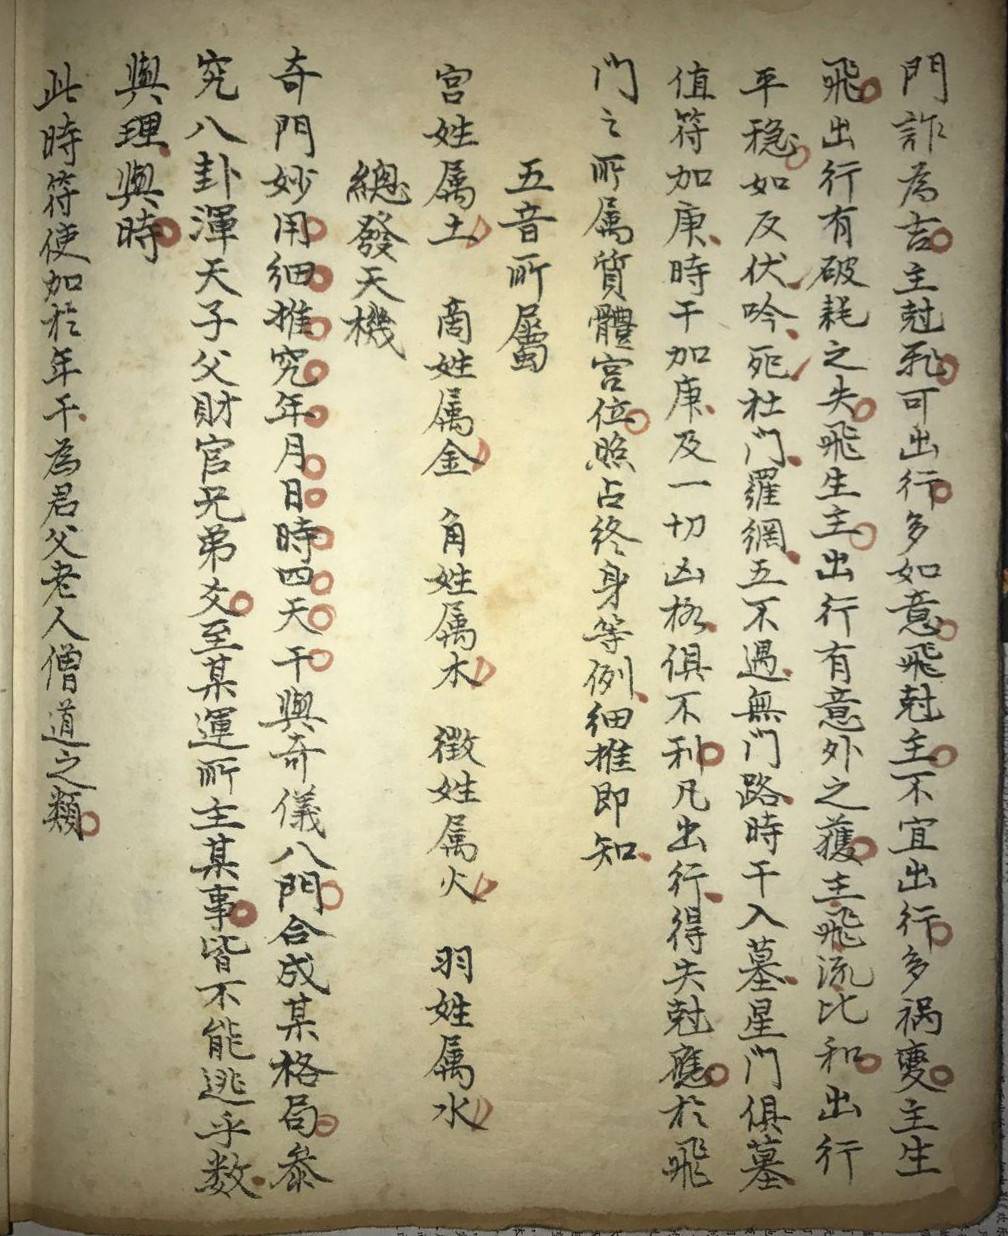 門詐為吉主尅飛可出行多如意飛尅主不宜出行多禍變主生
飛出行有破耗之失飛生主出行有意外之獲主飛流比和出行
平穩如反伏吟死杜門羅網五不遇無門路時干入墓星門俱墓
值符加庚時干加庚及一切凶格俱不利凡出行得失尅應於飛
門之所属質體宮位照占終身等例細推即知
五音所屬
宮姓属土 商姓属金 角姓属木 徵姓属火 羽姓属水
總發天機
奇門妙用細推究年月日時四天干與奇儀八門合成某格局叅
究八卦渾天子父財官兄弟爻至某運所主某事皆不能逃乎数
與理與時
此時符使加於年干為君父老人僧道之類